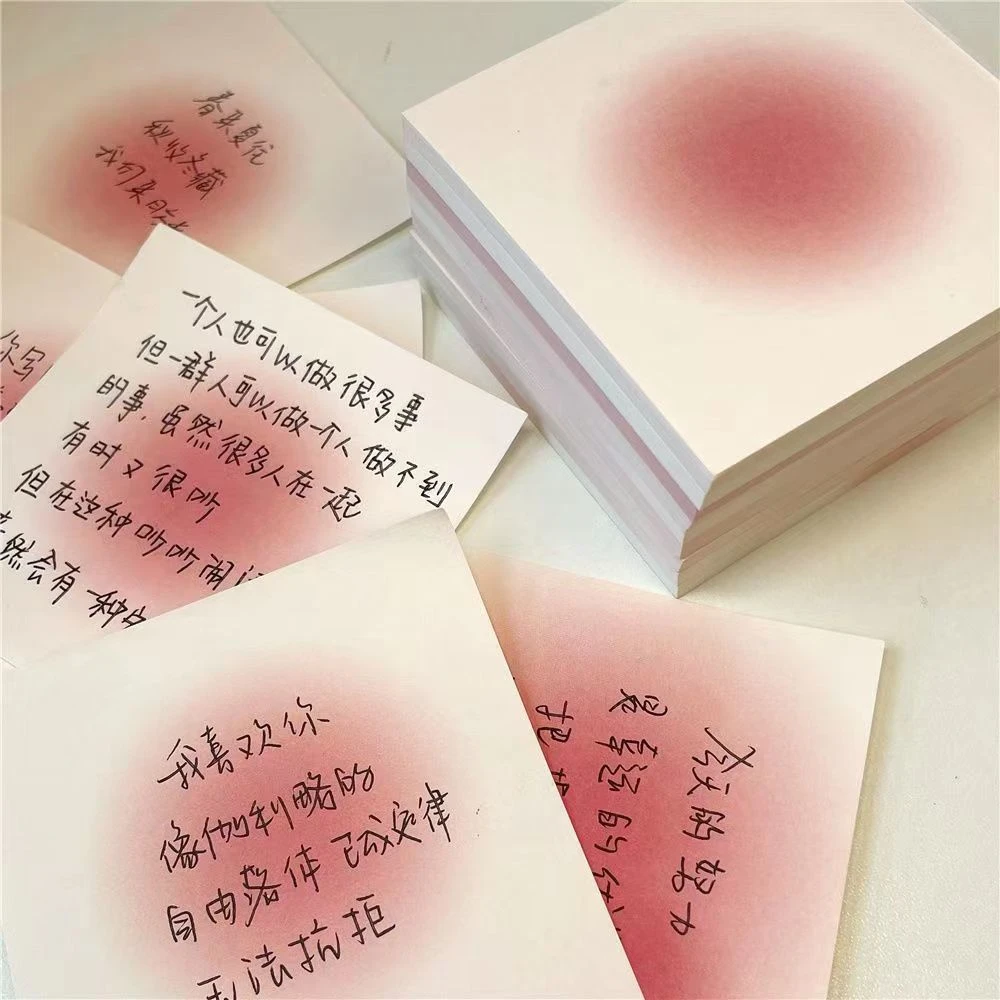 春来夏往
秋收冬藏
我们来日
你写
一个人也可以做很多事
但一群人可以做一个人做不到
的事,虽然很多人在一起
有时又很吵
但在这种吵吵闹
然会有一种
我喜欢你
像伽利略的
自由落体 已成定律
无法抗拒
是幸运的
把